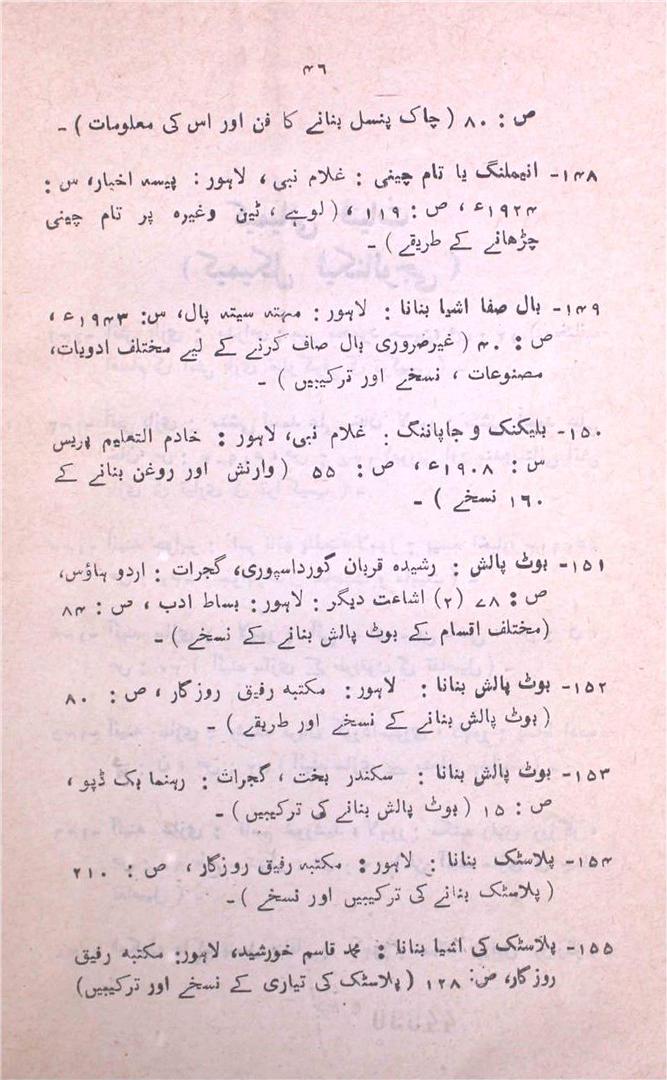 ۴۶
ص : ۸۰ ( چاک پنسل بنانے کا فن اور اس کی معلومات ) ۔
۱۴۸۔ انیملنگ یا تام چینی : غلام نبی ، لاہور : پیسہ اخبار، س :
۱۹۲۴ء ، ص : ۱۱۹ ، ( لوہے ، ٹین وغیرہ پر تام چینی
چڑھانے کے طریقے ) ۔
۱۴۹۔ بال صفا اشیا بنانا : لاہور : مہتہ سیتہ پال، س: ۱۹۴۳ء ،
ص : ۴۰ ( غیرضروری بال صاف کرنے کے لیے مختلف ادویات،
مصنوعات ، نسخے اور ترکیبیں ) ۔
۱۵۰۔ بلیکنک و جاپاننگ : غلام نبی، لاہور : خادم التعلیم پریس
س : ۱۹۰۸ء ، ص : ۵۵ ( وارنش اور روغن بنانے کے
۱۶۰ نسخے ) ۔
۱۵۱۔ بوٹ پالش : رشیدہ قربان گورداسپوری، گجرات : اردو ہاؤس،
ص : ۷۸ (۲) اشاعت دیگر : لاہور : بساط ادب ، ص : ۸۴
(مختلف اقسام کے بوٹ پالش بنانے کے نسخے ) ۔
۱۵۲۔ بوٹ پالش بنانا : لاہور : مکتبہ رفیق روزگار ، ص : ۸۰
( بوٹ پالش بنانے کے نسخے اور طریقے ) ۔
۱۵۳۔ بوٹ پالش بنانا : سکندر بخت ، گجرات : رہنما بک ڈپو ،
ص : ۱۵ ( بوٹ پالش بنانے کی ترکیبیں ) ۔
۱۵۴۔ پلاسٹک بنانا : لاہور : مکتبہ رفیق روزگار ، ص : ۲۱۰
( پلاسٹک بنانے کی ترکیبیں اور نسخے ) ۔
۱۵۵۔ پلاسٹک کی اشیا بنانا : محمد قاسم خورشید، لاہور: مکتبہ رفیق
روزگار، ص: ۱۲۸ ( پلاسٹک کی تیاری کے نسخے اور ترکیبیں)